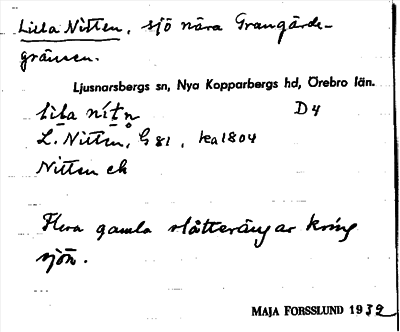 Lilla Nitten, sjö nära Grangärde-
gränsen.
Ljusnarsbergs sn, Nya Kopparbergs hd, Örebro län.
lila nitn D4
L. Nitten, G 81, ka 1804
Nitten ek
Flera gamla slåtterängar kring
sjön.
MAJA FORSSLUND 1932